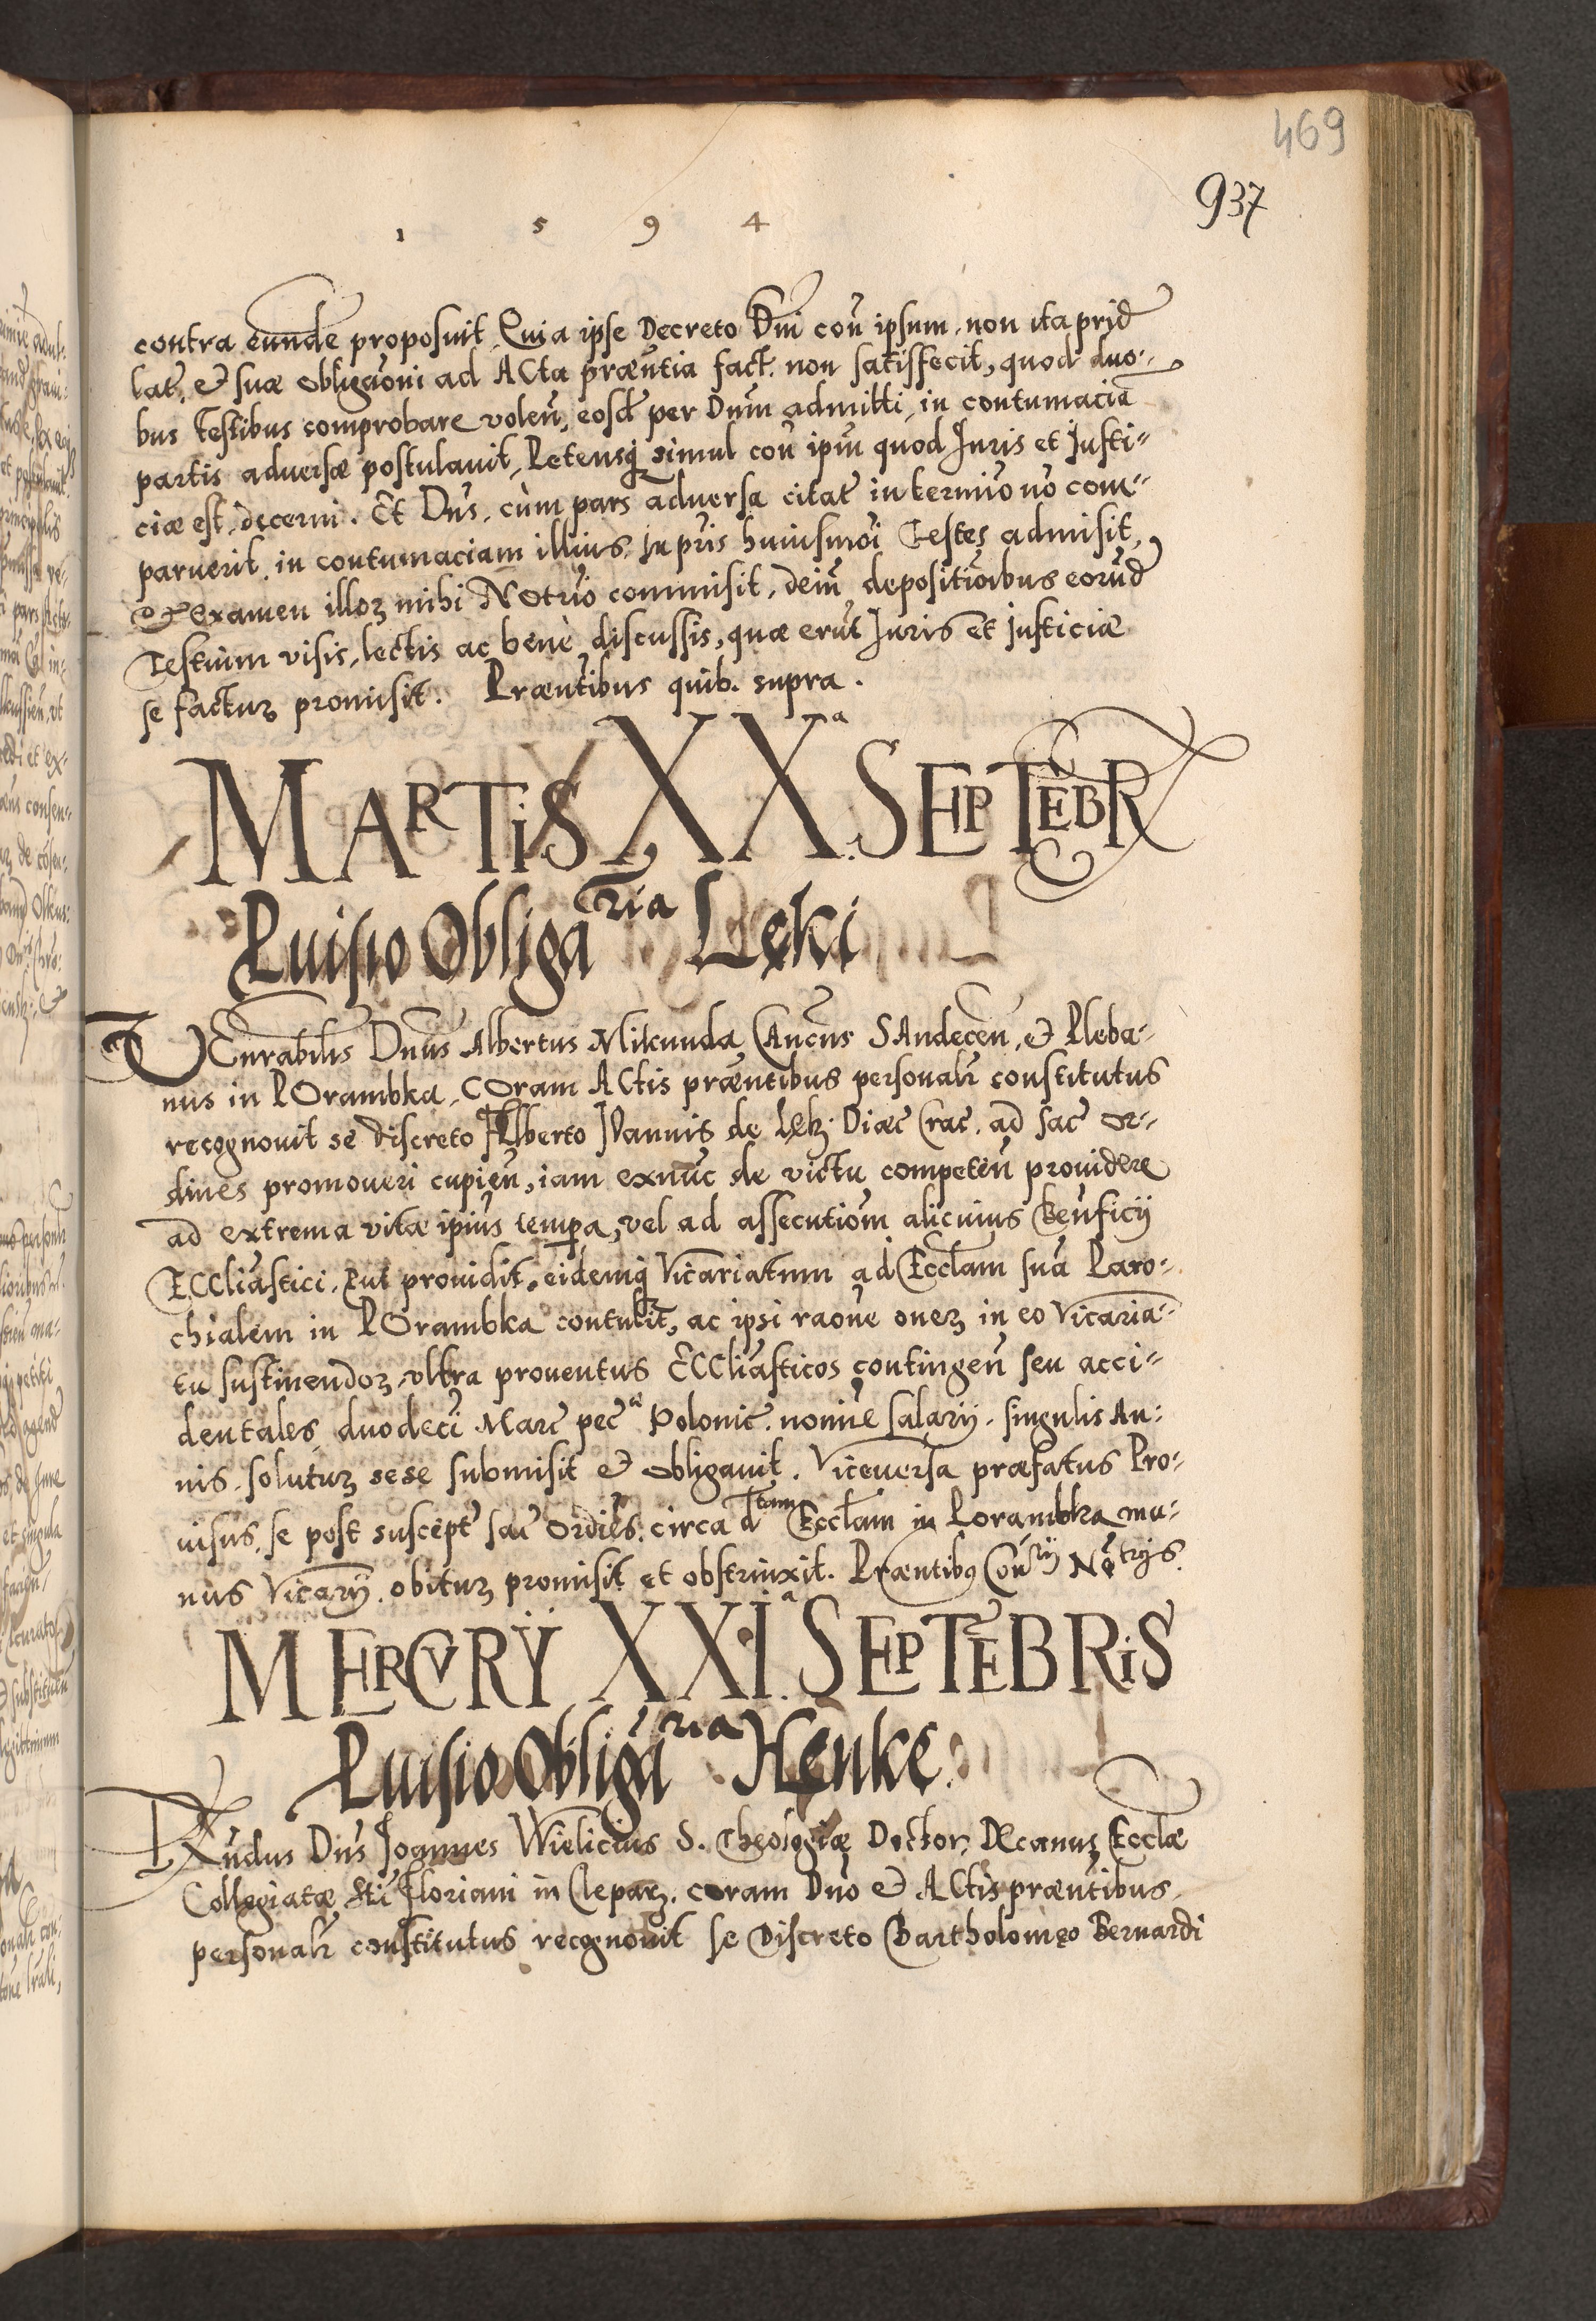 469
937
1 5 9 4
contra eunde proposuit, Quia ipse Decreto Dni con̄ ipsum, non ita prid̄
lat̄, et suæ obligaōni ad ACta præn̄tia fact. non satisfecit, quod duo-
bus testibus comprobare volen̄, eosd̄ per Dnm̄ admitti, in contumaciā
partis adversæ postulavit, Petensq́ simul con̄ ipm̄ quod Juris et Justi-
ciæ est, decerni. Et Dn̄s, cùm pars adversa citat̄ in termīo nō com-
paruerit, in contumaciam illius, in prīs huiusmōi Testes admisit,
et examen illoꝝ mihi NOtrīo commisit, dein̄ depositiōibus eorūd̄
Testium visis, lectis ac benè discussis, quæ erūt Juris et Justiciæ
se factuꝝ promisit. Præn̄tibus quib. supra.
MARTiS XXª. SEPTĒBR
Puisio Obligaria Lęki
VEnrabilis Dnūs Albertus Mikunda, CAncūs SAndecen̄, et Pleba-
nus in POrambka, COram ACtis præn̄tibus personalr̄ constitutus
recognovit se discreto Alberto IOannis de Lęk: Diæc̄ Crac̄. ad sac̄ or-
dines promoveri cupien̄, iam exnūc de victu competen̄ providere
ad extrema vitæ ipiūs tempa, vel ad assecutiom̄ alicuius Ben̄ficij
ECCliāstici, put providit, eidemq́ Vicāriatum ad Ecclam̄ suā Paro-
chialem in POrambka contulit, ac ipsi raōne oneꝝ in eo Vicāria-
tu sustinendoꝝ, ultra proventus ECCliāsticos contingen̄ seu acci-
dentales, duodecī Marc̄ pec̄ª Polonic̄. nomīe salarij, singulis An-
nis, solutuꝝ sese submisit et obligavit. Viceversa præfatus Pro-
visus, se post suscept̄ sac̄ ordīes, circa dtam Ecclam̄ in Porambka mu-
nus Vicarij, obituꝝ promisit et obstrinxit. Præn̄tibꝰ Con̄rij Nōtrijs.
MERCVRŸ XXIª. SEPTĒBRiS
Puisio Obligāria Henke.
RXn̄dus Dn̄s Joannes Wielicius S. Theologiæ Doctor, DEcanus Ecclæ
Collegiatæ Sti Floriani in Clepaꝝ. coram Dno et ACtis præn̄tibus
personalr̄ constitutus recognovit se Discreto Bartholomeo Bernardi